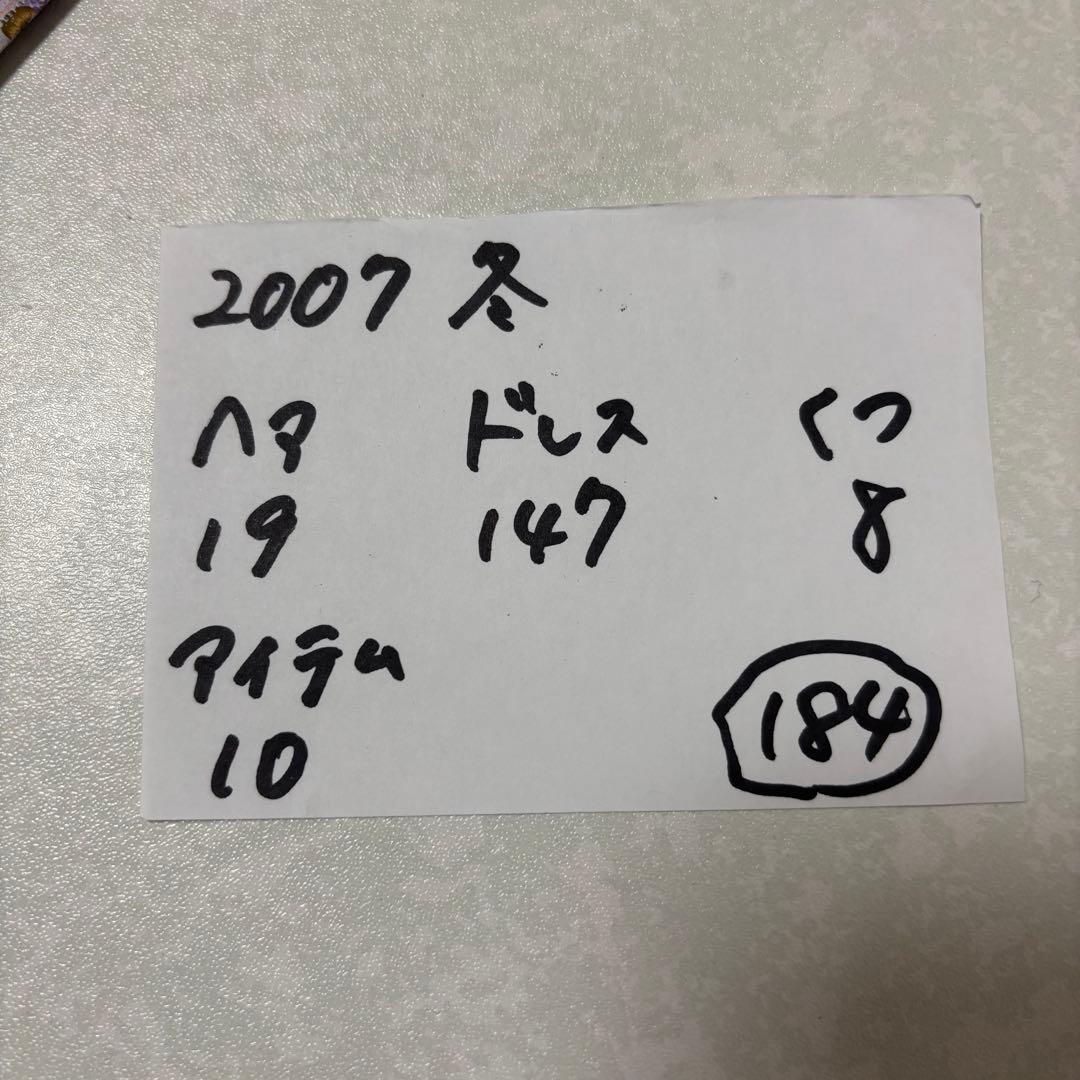 2007 冬
ヘア ドレス くつ
19 147 8
アイテム
10 184